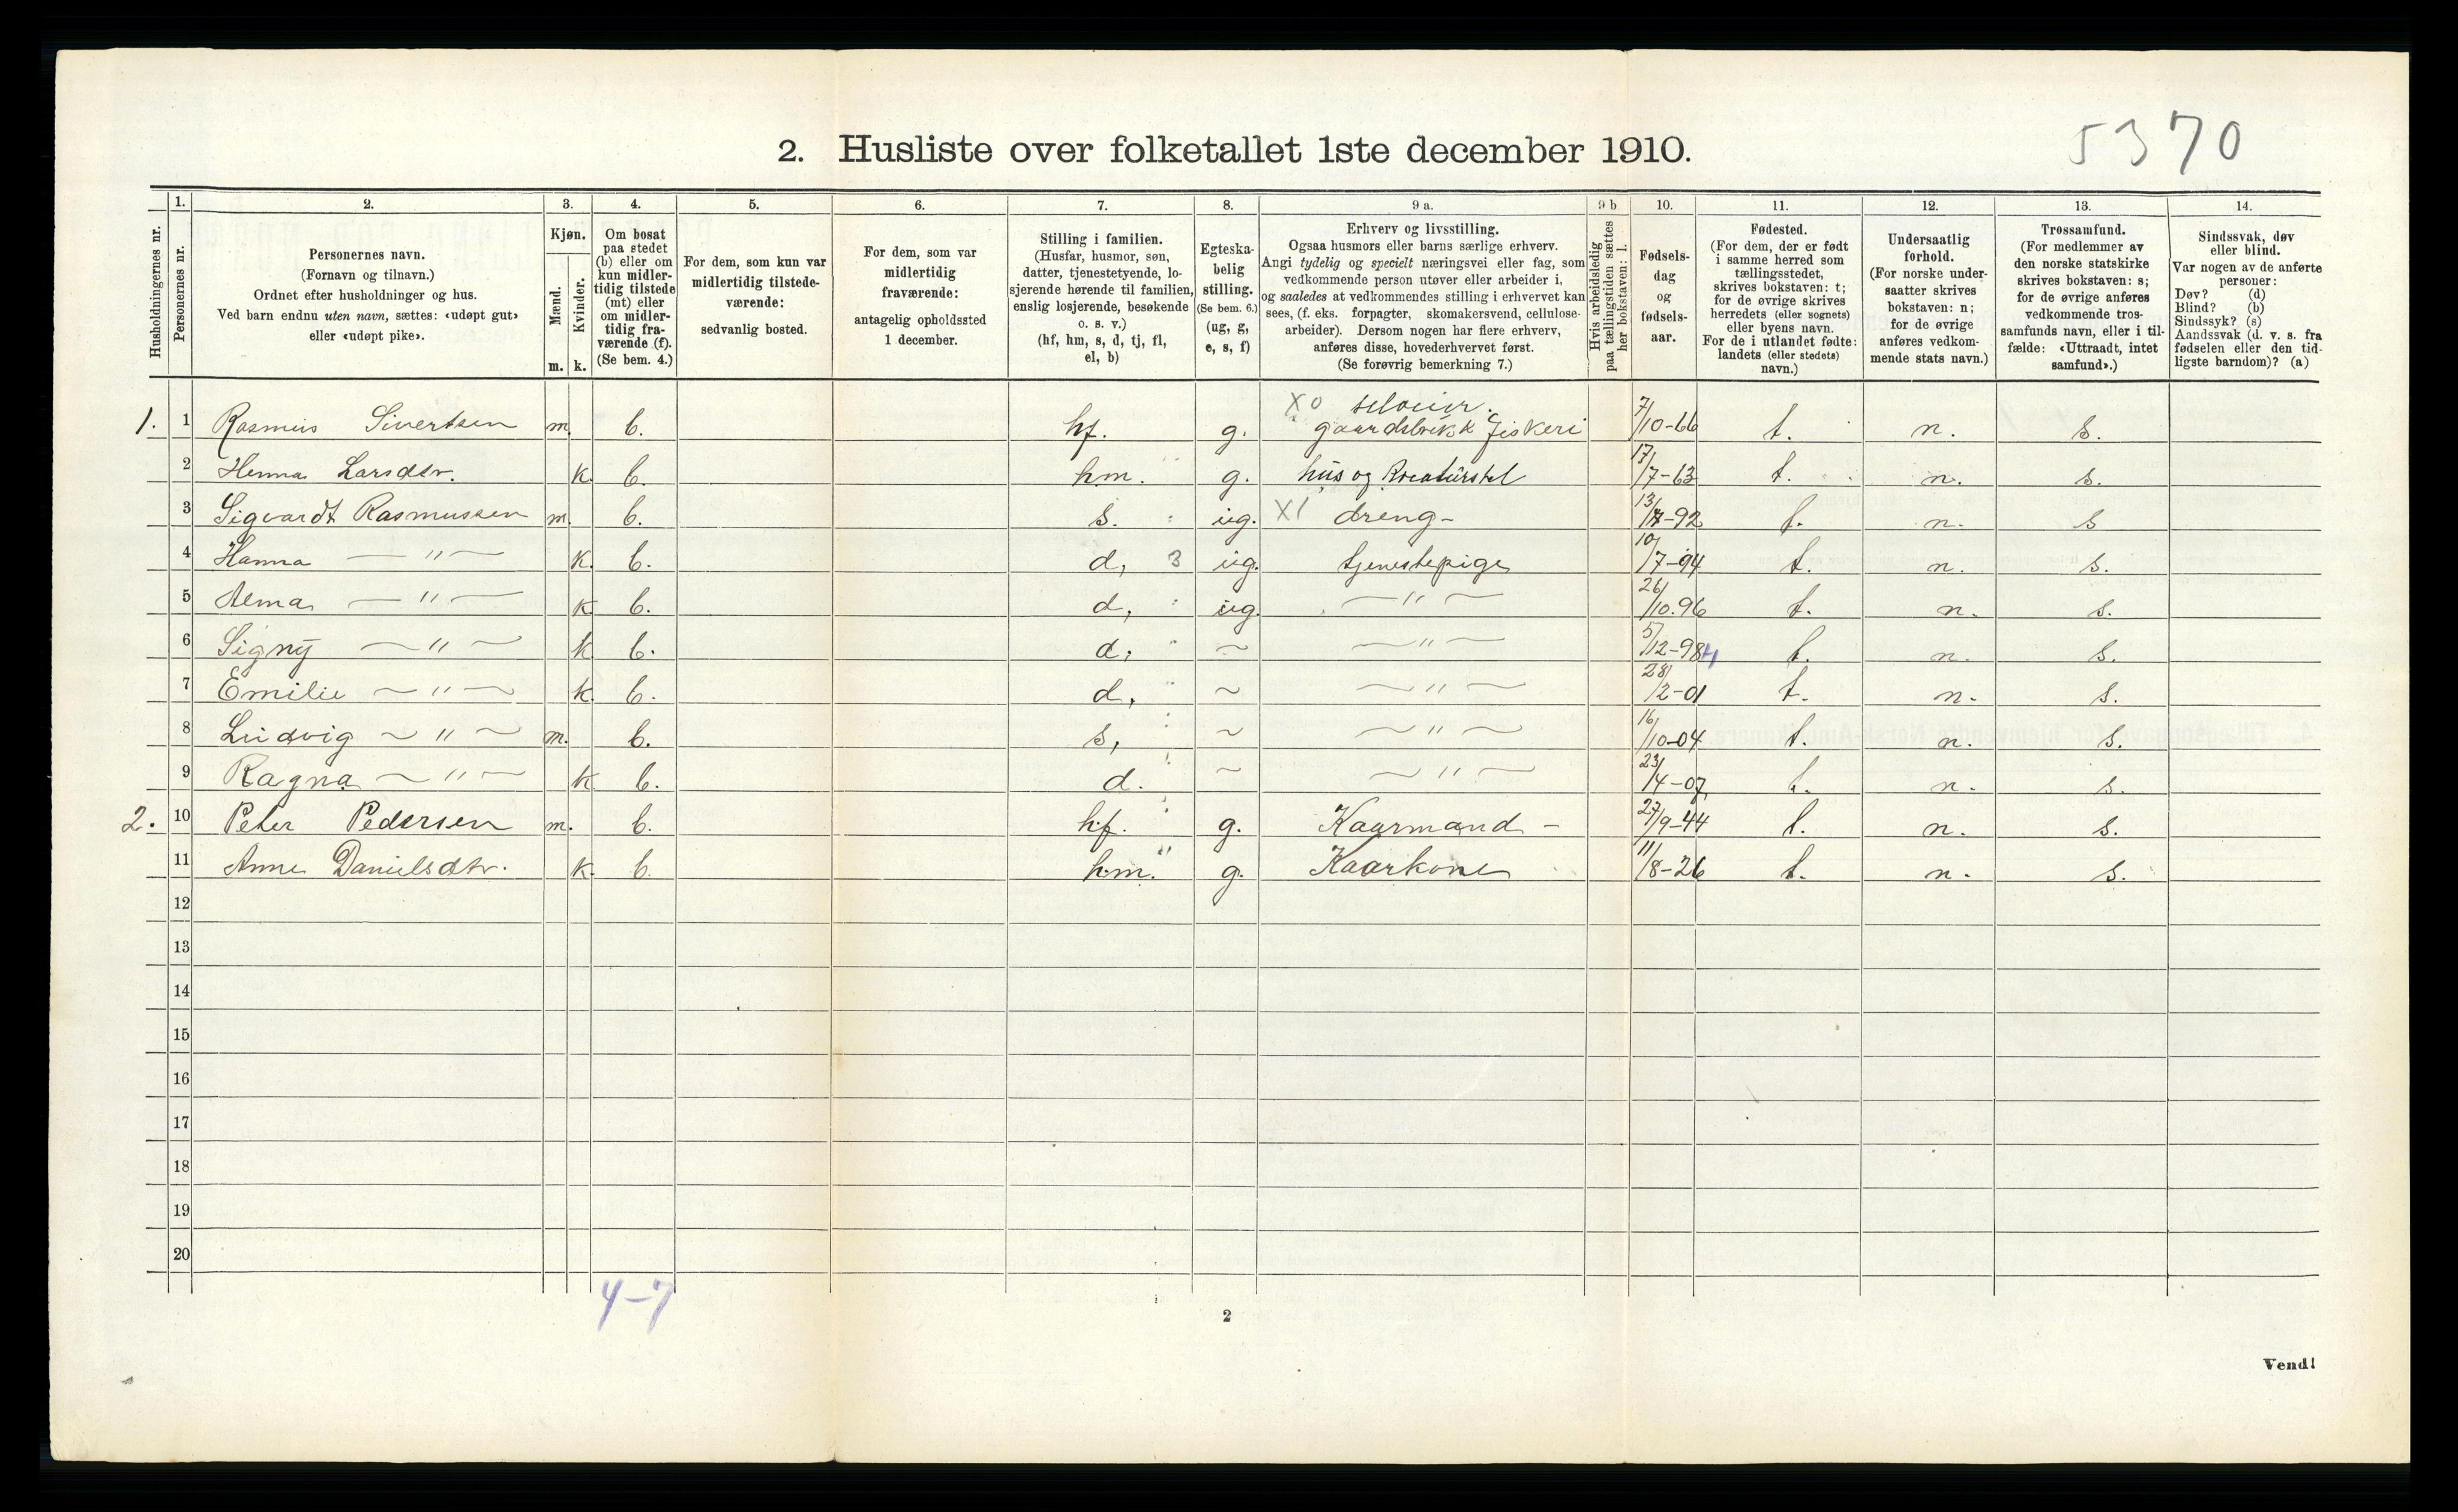 5370
2. Husliste over folketallet 1ste december 1910.
Husholdningernes nr.
1.
Personernes nr.
2.
Personernes navn.
(Fornavn og tilnavn.)
Ordnet efter husholdninger og hus.
Ved barn endnu uten navn, sættes: «udøpt gut»
eller «udøpt pike».
3.
Kjøn.
Mænd.
Kvinder.
m. k.
4.
Om bosat
paa stedet
(b) eller om
kun midler-
tidig tilstede
(mt) eller
om midler-
tidig fra-
værende (f).
(Se bem. 4.)
5.
For dem, som kun var
midlertidig tilstede-
værende:
sedvanlig bosted.
6.
For dem, som var
midlertidig
fraværende:
antagelig opholdssted
1 december.
7.
Stilling i familien.
(Husfar, husmor, søn,
datter, tjenestetyende, lo-
sjerende hørende til familien,
enslig losjerende, besøkende
o. s. v.)
(hf, hm, s, d, tj, fl,
el, b)
8.
Egteska-
belig
stilling.
(Se bem. 6.)
(ug, g,
e, s, f)
9 a.
Erhverv og livsstilling.
Ogsaa husmors eller barns særlige erhverv.
Angi tydelig og specielt næringsvei eller fag, som
vedkommende person utøver eller arbeider i,
og saaledes at vedkommendes stilling i erhvervet kan
sees, (f. eks. forpagter, skomakersvend, cellulose-
arbeider). Dersom nogen har flere erhverv,
anføres disse, hovederhvervet først.
(Se forøvrig bemerkning 7.)
9 b
Hvis arbeidsledig
paa tællingstiden sættes
her bokstaven: l.
10.
Fødsels-
dag
og
fødsels-
aar.
11.
Fødested.
(For dem, der er født
i samme herred som
tællingsstedet,
skrives bokstaven: t;
for de øvrige skrives
herredets (eller sognets)
eller byens navn.
For de i utlandet fødte:
landets (eller stedets)
navn.)
12.
Undersaatlig
forhold.
(For norske under-
saatter skrives
bokstaven: n;
for de øvrige
anføres vedkom-
mende stats navn.)
13.
Trossamfund.
(For medlemmer av
den norske statskirke
skrives bokstaven: s;
for de øvrige anføres
vedkommende tros-
samfunds navn, eller i til-
fælde: «Uttraadt, intet
samfund».)
14.
Sindssvak, døv
eller blind.
Var nogen av de anførte
personer:
Døv? (d)
Blind? (b)
Sindssyk? (s)
Aandssvak (d. v. s. fra
fødselen eller den tid-
ligste barndom)? (a)
X0 selveier.
1. 1 Rasmus Sivertsen m. b. hf. g. gaardsbruk & fiskeri 7/10-66 t. n. s.
2 Larsdtr. k. b. hm. g. hus og kreaturstel 17/7-63 t. n. s.
3 Sigvardt Rasmussen m. b. s. ug. X1 dreng - 13/ -92 t. n. s
4 Hanna — " — k. b. d, 3 ug. tjenestepige 10/7-94 t. n. s.
5 Alma — " — k. b. d, ug. — " — 26/10.96 t. n. s.
6 Signy — " — k b. d, ~ — " — 5/12-98 4 t. n. s.
7 Emilie — " — k. b. d, ~ — " — 28/2-01 t. n. s.
8 Ludvig ~ " ~ m. b. s, ~ — " — 16/10-04 t. n. s.
9 Ragna — " — k b. d. ~ — " — 23/4-07 t. n. s.
2. 10 Peter Pedersen m. b. hf. g. Kaarmand - 27/9-44 t. n. s.
11 Anne Danielsdtr. k. b. hm. g. Kaarkone 11/8-26 t. n. s.
12
13
14
15
16
17
18
19
20
4-7
2
Vend!